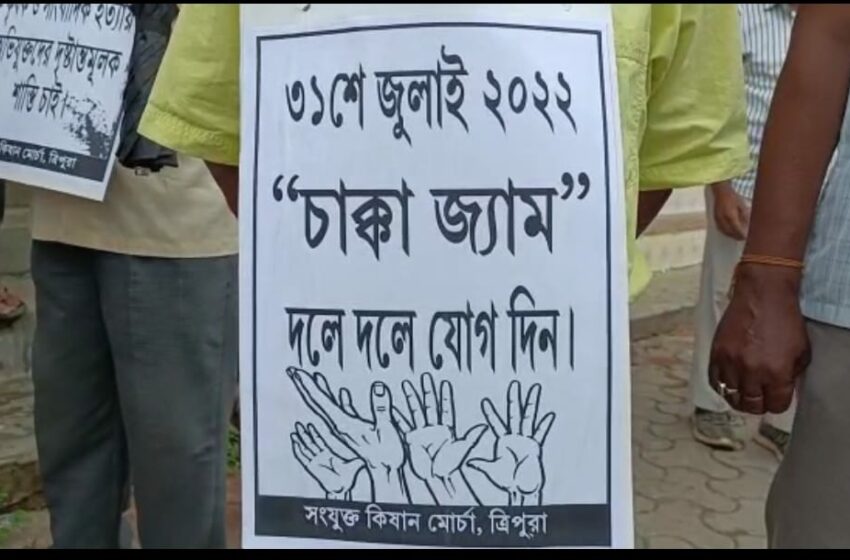 হত্যার
অভিযুক্তদের দৃষ্টান্তমূলক
শাস্তি চাই।
কিষান মোর্চা, ত্রিপুরা
৩১শে জুলাই ২০২২
“চাক্কা জ্যাম”
দলে দলে যোগ দিন।
সংযুক্ত কিষান মোর্চা, ত্রিপুরা